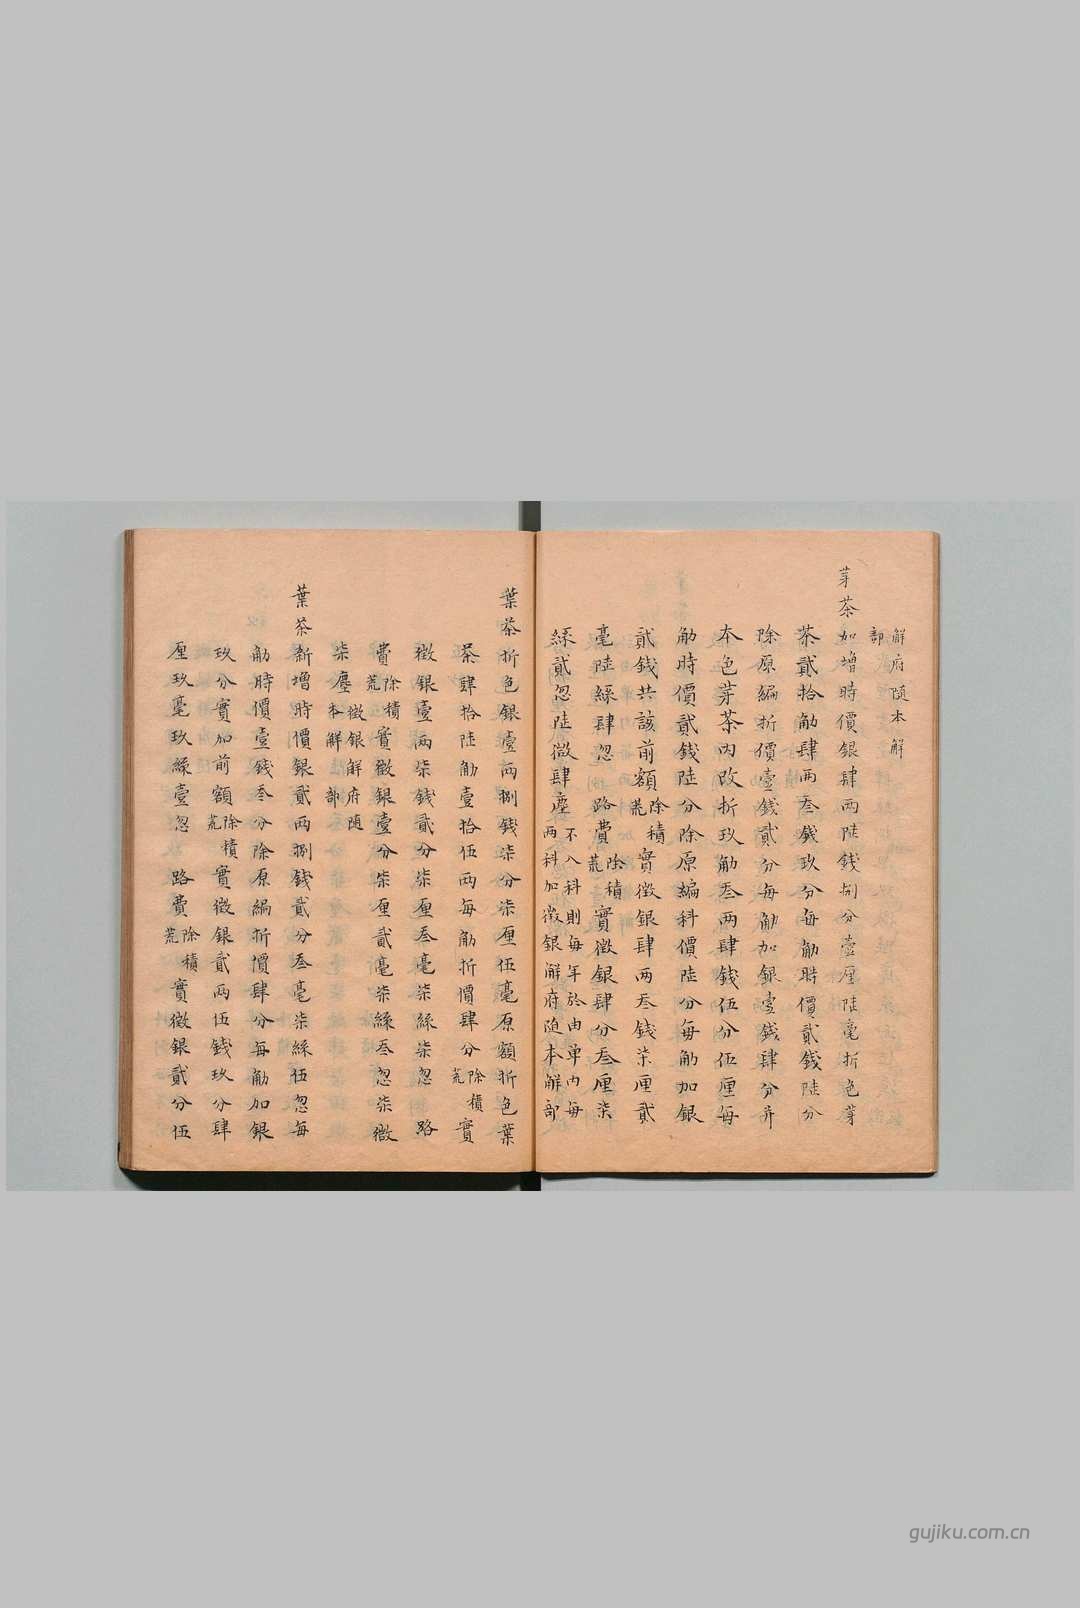 解府隨本解
部
芽茶加增時價銀肆兩陸錢捌分壹厘陸毫折色芽
茶貳拾觔肆兩叁錢玖分每觔時價貳錢陸分
除原編折價壹錢貳分每觔加銀壹錢肆分并
本色芽茶內改折玖觔叁兩肆錢伍分伍厘每
觔時價貳錢陸分除原編科價陸分每觔加銀
貳錢共該前額除積荒實徵銀肆兩叁錢柒厘貳
毫陸絲肆忽路費除積荒實徵銀肆分叁厘柒
絲貳忽陸微肆塵不入科則每年於由單內每
兩科加徵銀解府随本解部
葉茶折色銀壹兩捌錢柒分柒厘伍毫原額折色葉
茶肆拾陸觔壹拾伍兩每觔折價肆分除積荒實
徵銀壹兩柒錢貳分柒厘叁毫柒絲柒忽路
費除積荒實徵銀壹分柒厘貳毫柒絲叁忽柒微
柒塵徵銀解府随
本解部
葉茶新增時價銀貳兩捌錢貳分叁毫柒絲伍忽每
觔時價壹錢叁分除原編折價肆分每觔加銀
玖分實加前額除積荒實徵銀貳兩伍錢玖分肆
厘玖毫玖絲壹忽路費除積荒實徵銀貳分伍
gujiku.com.cn